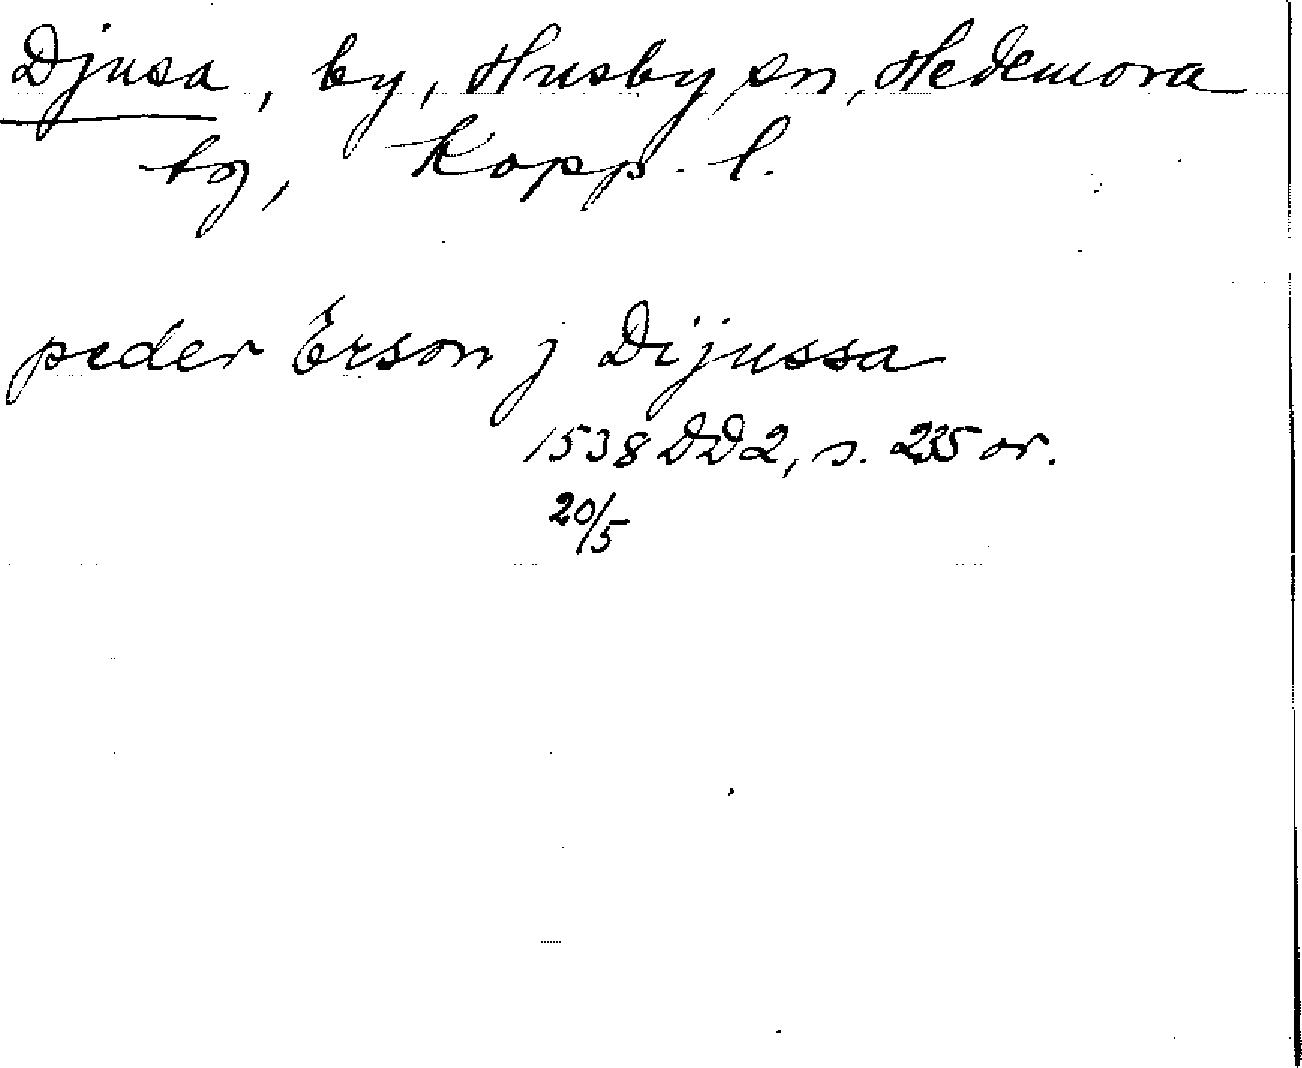 Djusa, by, Husby sn, Hedemora
tg, Kopp. l.
peder Erson j Dijussa
1538 DD2, s. 235 or.
20/5